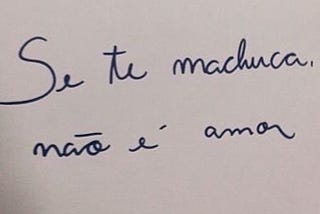 Se te machuca.
não é amor